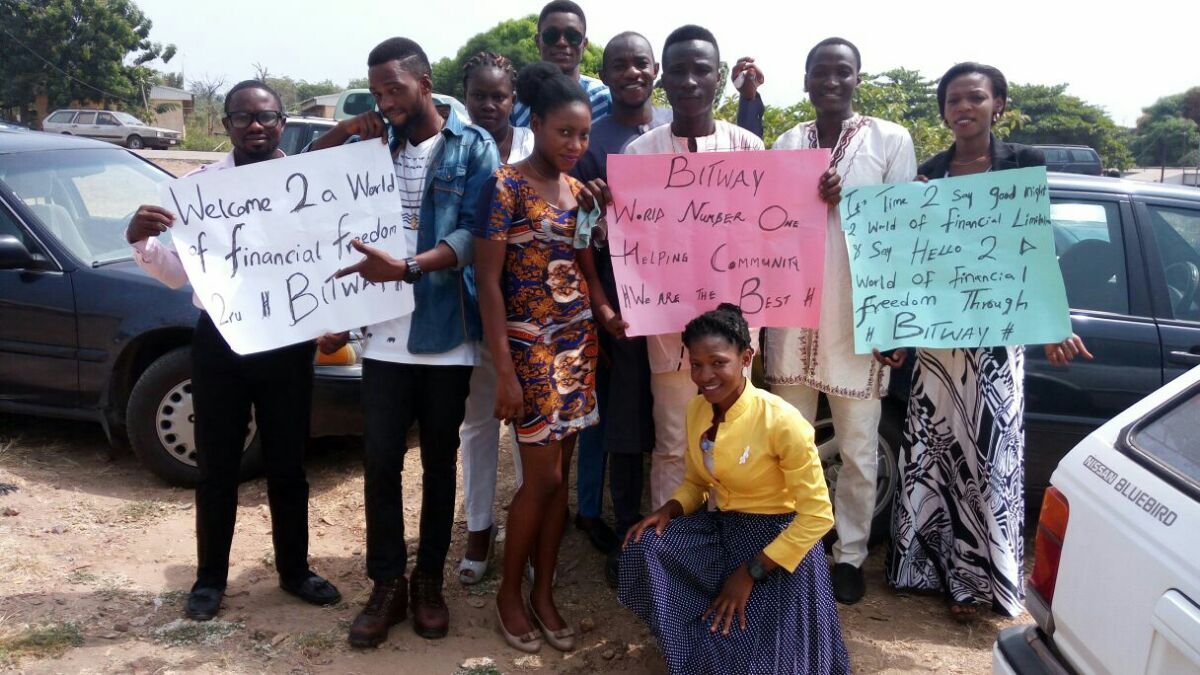 Welcome 2 a World
of financial freedom
2ru # BITWAY #
BITWAY
WORLD NUMBER ONE
HELPING COMMUNITY
#WE ARE THE BEST #
Its Time 2 Say good night
2 World of financial Limitation
& Say HELLO 2 A
World of financial
freedom Through
# BITWAY #
NISSAN BLUEBIRD